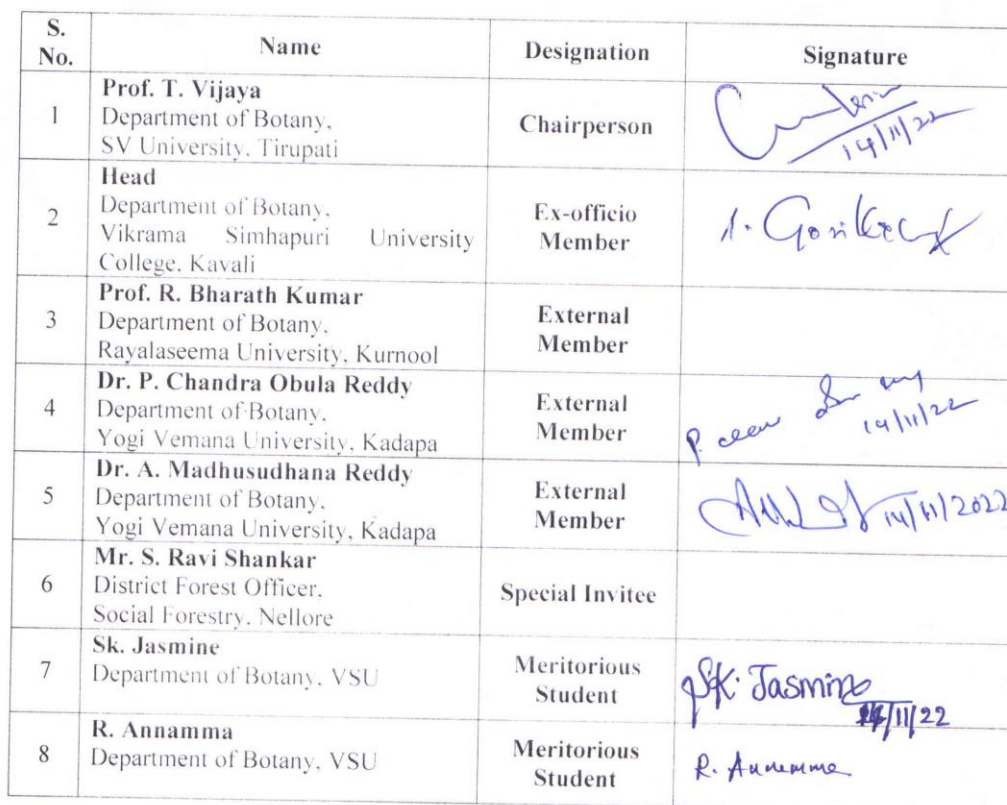 S. No. Name Designation Signature
1 Prof. T. Vijaya
Department of Botany,
SV University, Tirupati
Chairperson
14/11/22
2 Head
Department of Botany,
Vikrama Simhapuri University
College, Kavali
Ex-officio
Member
3 Prof. R. Bharath Kumar
Department of Botany,
Rayalaseema University, Kurnool
External
Member
4 Dr. P. Chandra Obula Reddy
Department of Botany,
Yogi Vemana University, Kadapa
External
Member
P.
14/11/22
5 Dr. A. Madhusudhana Reddy
Department of Botany,
Yogi Vemana University, Kadapa
External
Member
14/11/2022
6 Mr. S. Ravi Shankar
District Forest Officer,
Social Forestry, Nellore
Special Invitee
7 Sk. Jasmine
Department of Botany, VSU
Meritorious
Student
Sk. Jasmine
14/11/22
8 R. Annamma
Department of Botany, VSU
Meritorious
Student
R. Annamma